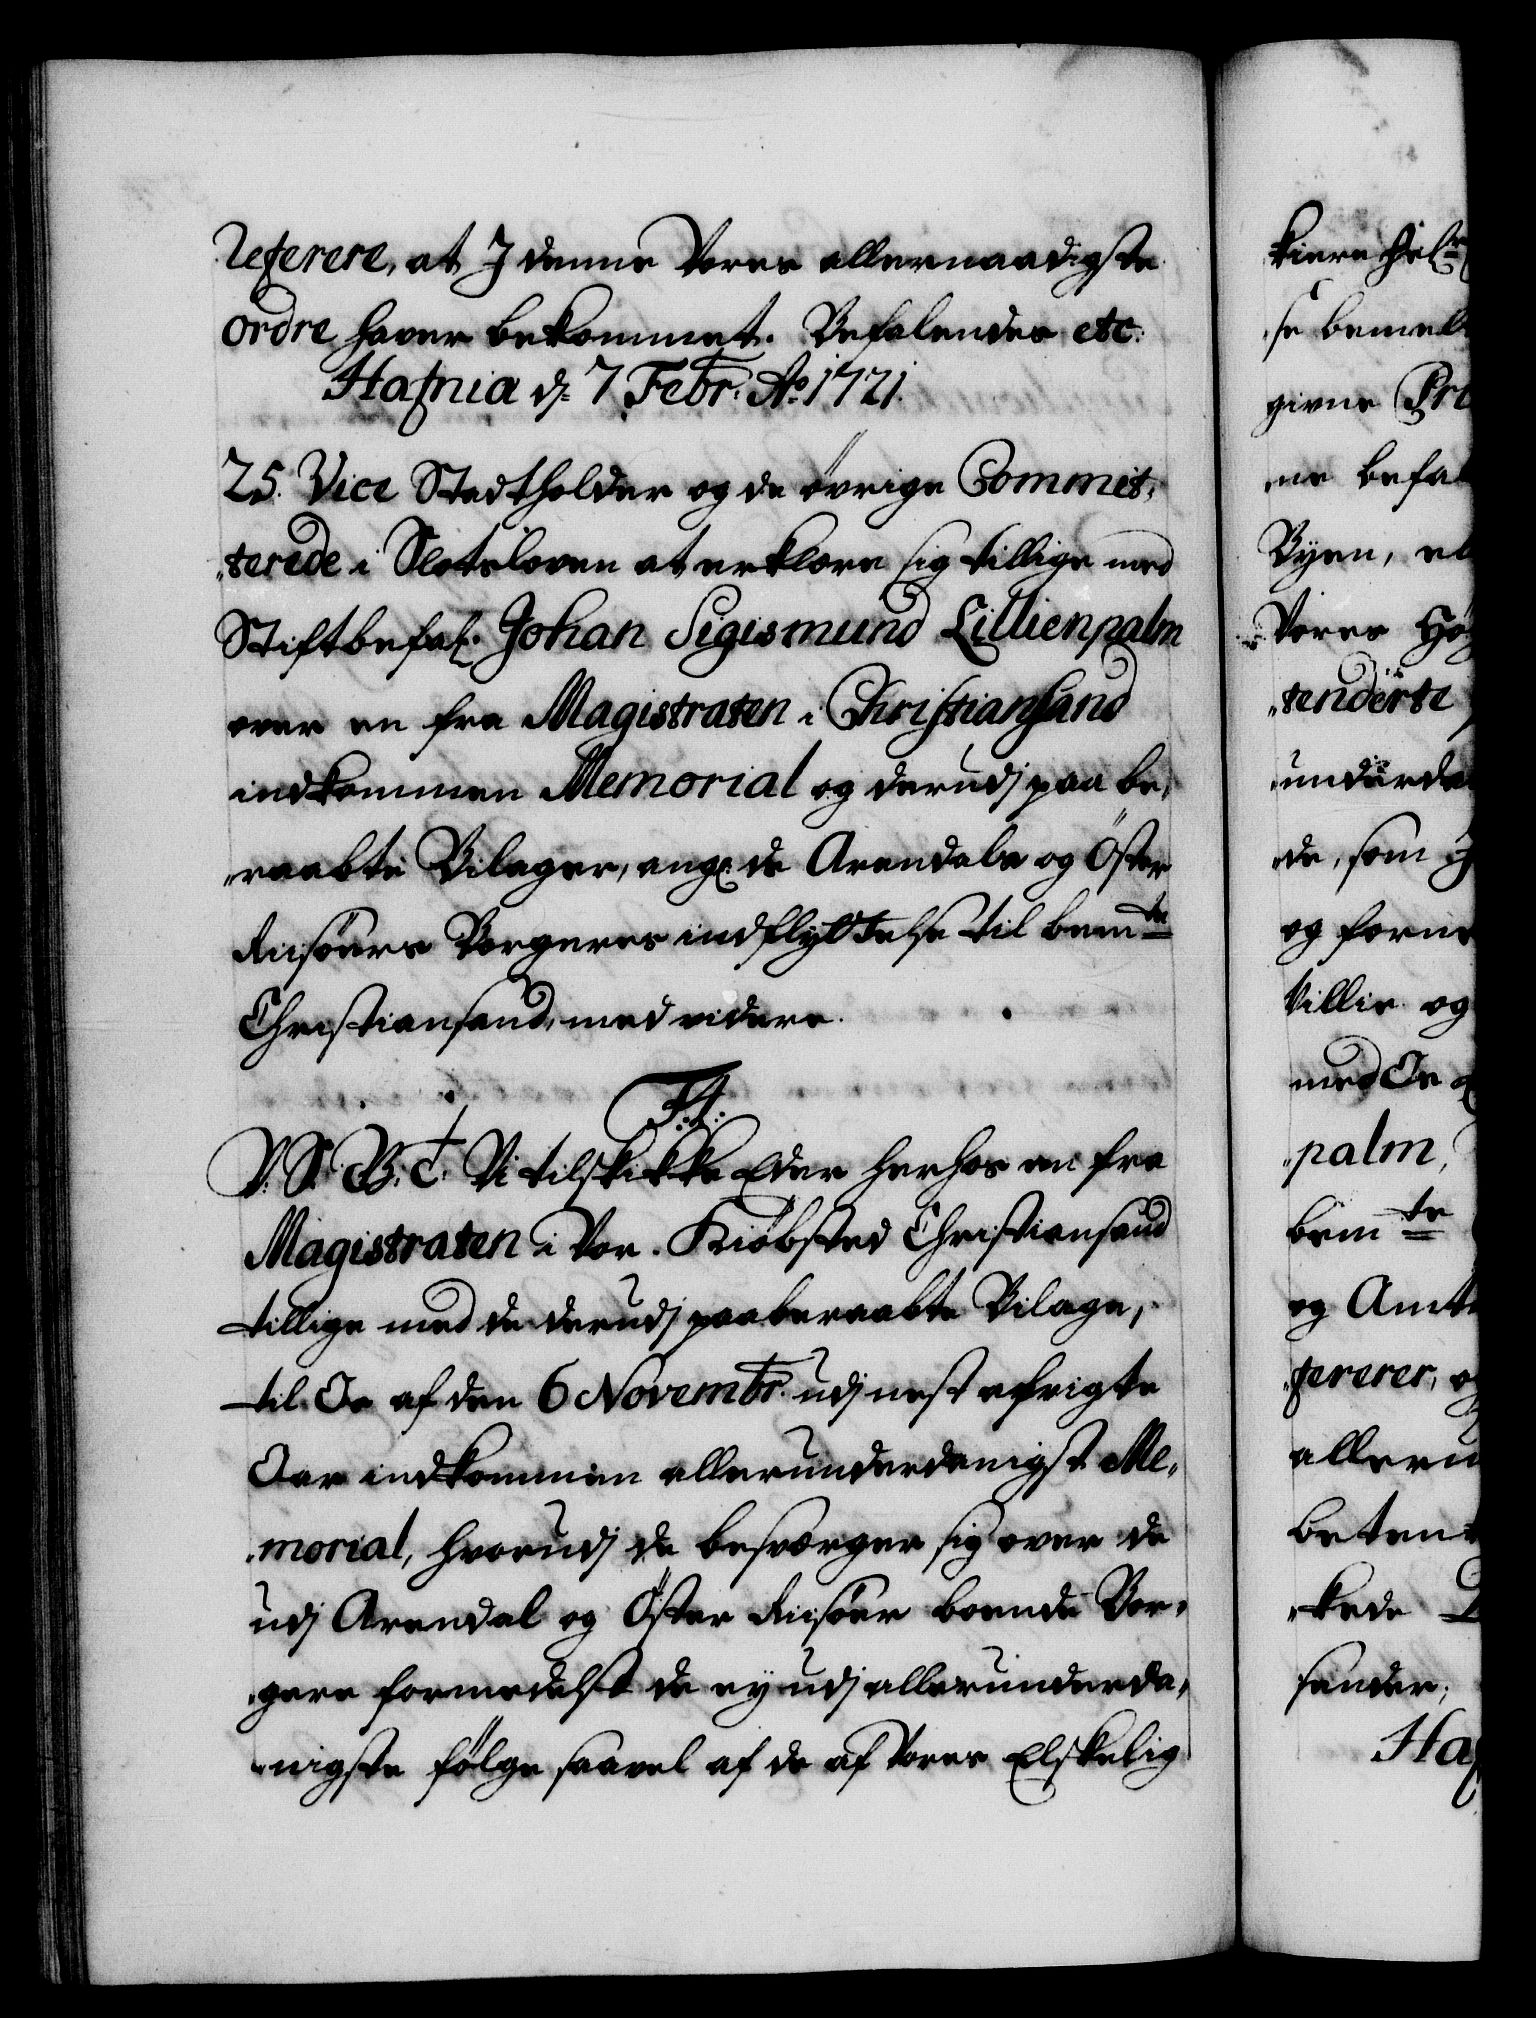 referere, at I denne Vores allernaadigste
ordre haver bekommet. Befalendes etc.
Hafnia d. 7 Febr. Ao 1721.
25. Vice Stadtholder og de övrige Commit„
„terede i Slotsloven at erklære sig tillige med
Stiftbefal. Johan Sigismund Lillienpalm
over en fra Magistraten i Christiansand
indkommen Memorial og derudj paa be„
„raabte Bilager, ang. de Arendals og Öster
Riisöers Borgeres indflyttelse til bem.te
Christiansand, med videre.
F. 4.
V. S. G. B. t. Vi tilskikke Eder herhos en fra
Magistraten i Vor Kiöbsted Christiansand
tillige med de derudj paaberaabte Bilage,
til Os af den 6 Novembr. udj nest afvigte
Aar indkommen allerunderdanigst Me„
„morial, hvorudj de besværger sig over de
udj Arendal og Öster Riisöer boende Bor„
„gere formedelst de ey udj allerunderda„
„nigste fölge saavel af de af Vores Elskelig
kiere
se bemel
givne Pr
„ne befal
Byen, el
Vores Hö
„tenderte
underda
„de, som I
og forne
Villie og
med Os
„palm,
bem.te
og Amt
„fererer, o
alleru
beten
„kede
sender,
Haf